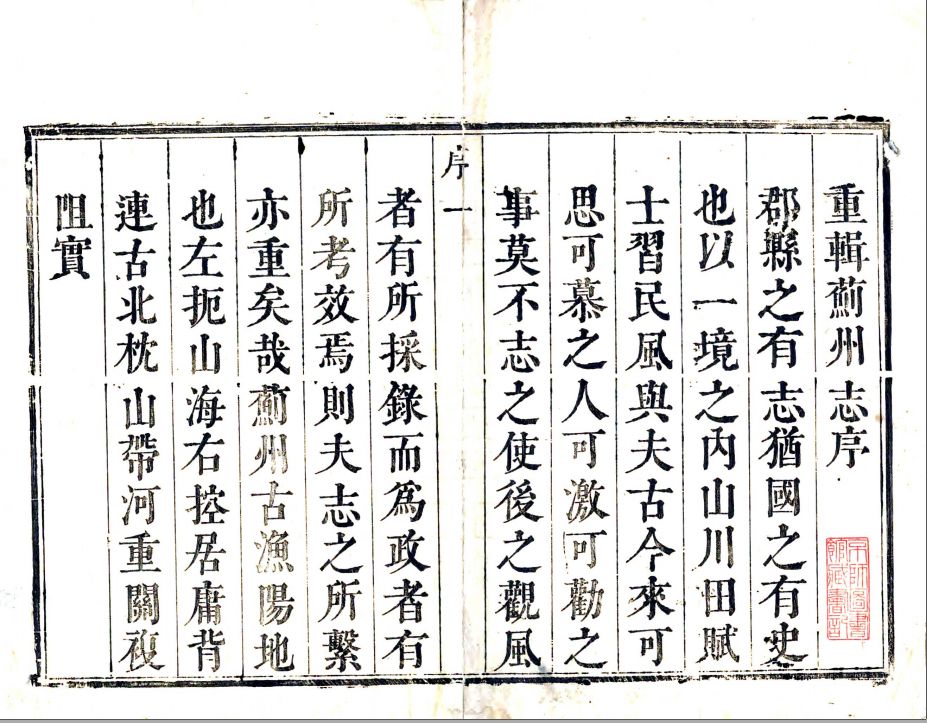 重輯薊州志序
郡縣之有志猶國之有史
也以一境之內山川田賦
士習民風與夫古今來可
思可慕之人可激可勸之
事莫不志之使後之觀風
序 一
者有所採錄而為政者有
所考效焉則夫志之所繫
亦重矣哉薊州古漁陽地
也左扼山海右控居庸背
連古北枕山帶河重關複
阻實
京師圖書
館藏書印